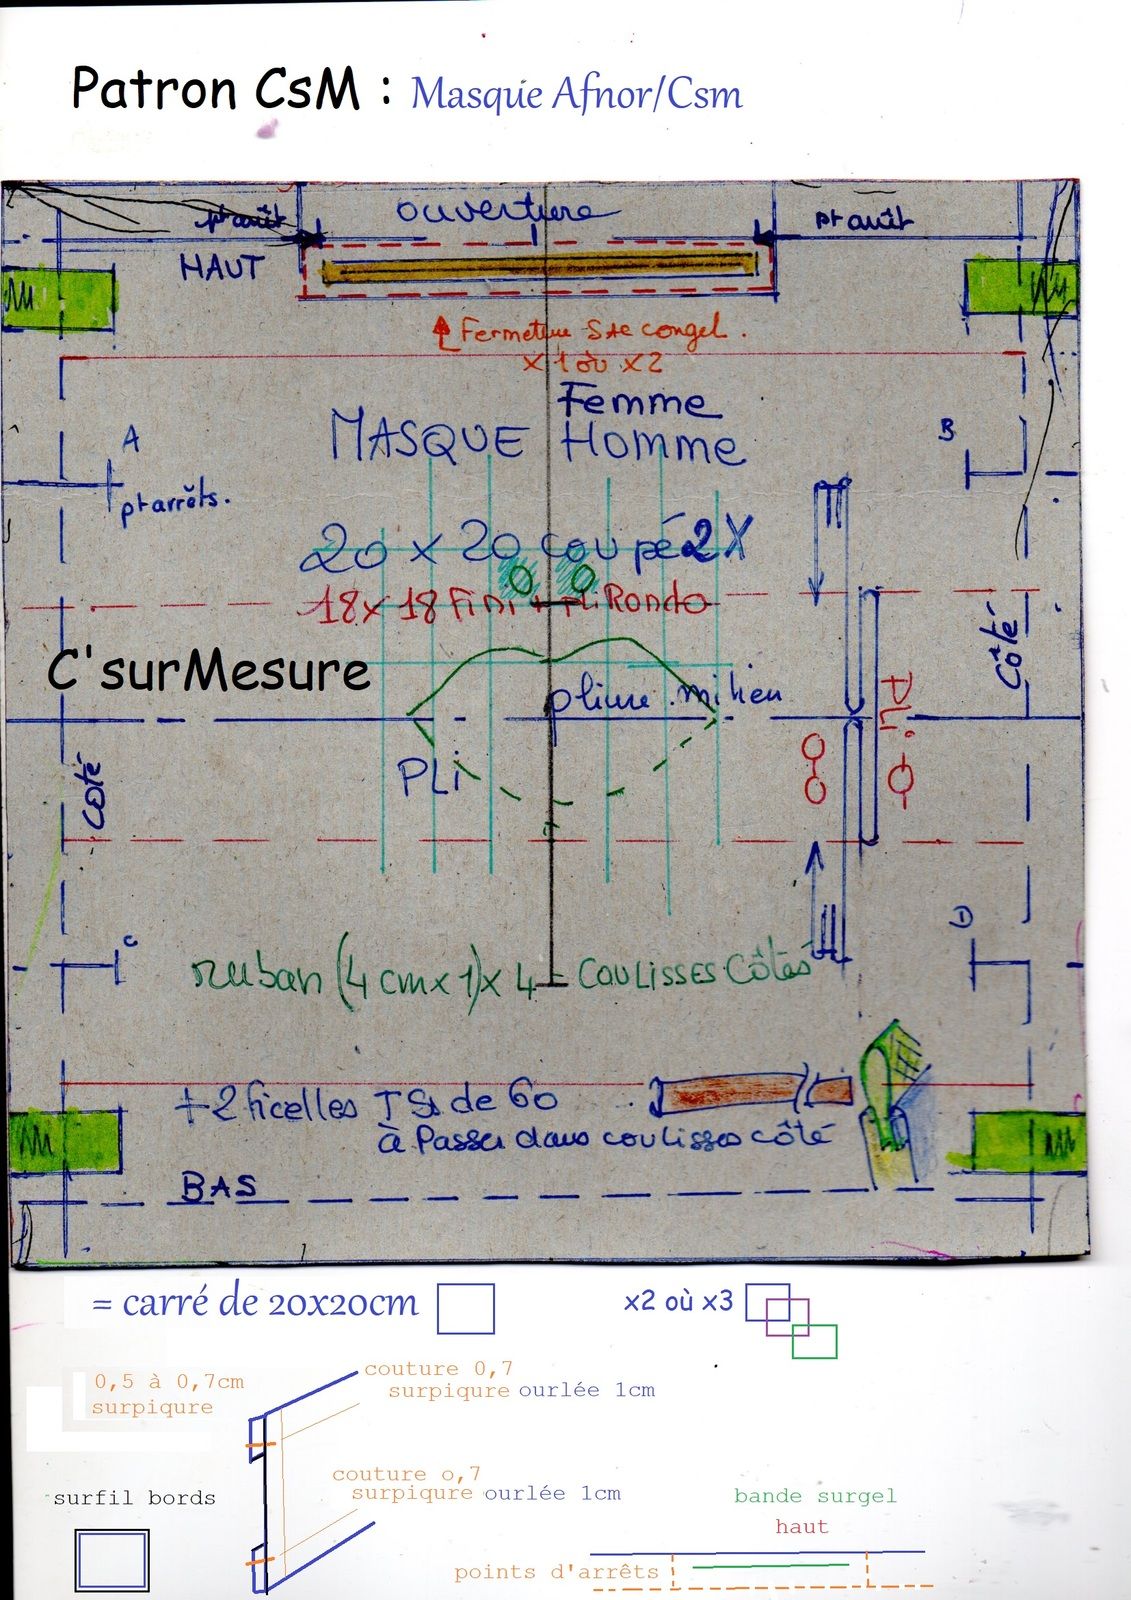 Patron CsM : Masque Afnor/Csm
pt arrêt
ouverture
pt arrêt
HAUT
Fermeture Sac congel.
x 1 où x2
Femme
MASQUE Homme
A
B
pt arrêts.
20 x 20 coupé 2X
18x18 Fini + pli Rondo
Côté
C'surMesure
pliure milieu
PLi
PLi
côté
C
D
ruban (4 cm x 1) x 4 = COULISSES Côtés
+ 2 ficelles de 60
à Passer dans coulisses côté
BAS
= carré de 20x20cm
x2 où x3
0,5 à 0,7cm
surpiqure
couture 0,7
surpiqure ourlée 1cm
couture 0,7
surpiqure ourlée 1cm
surfil bords
bande surgel
haut
points d'arrêts